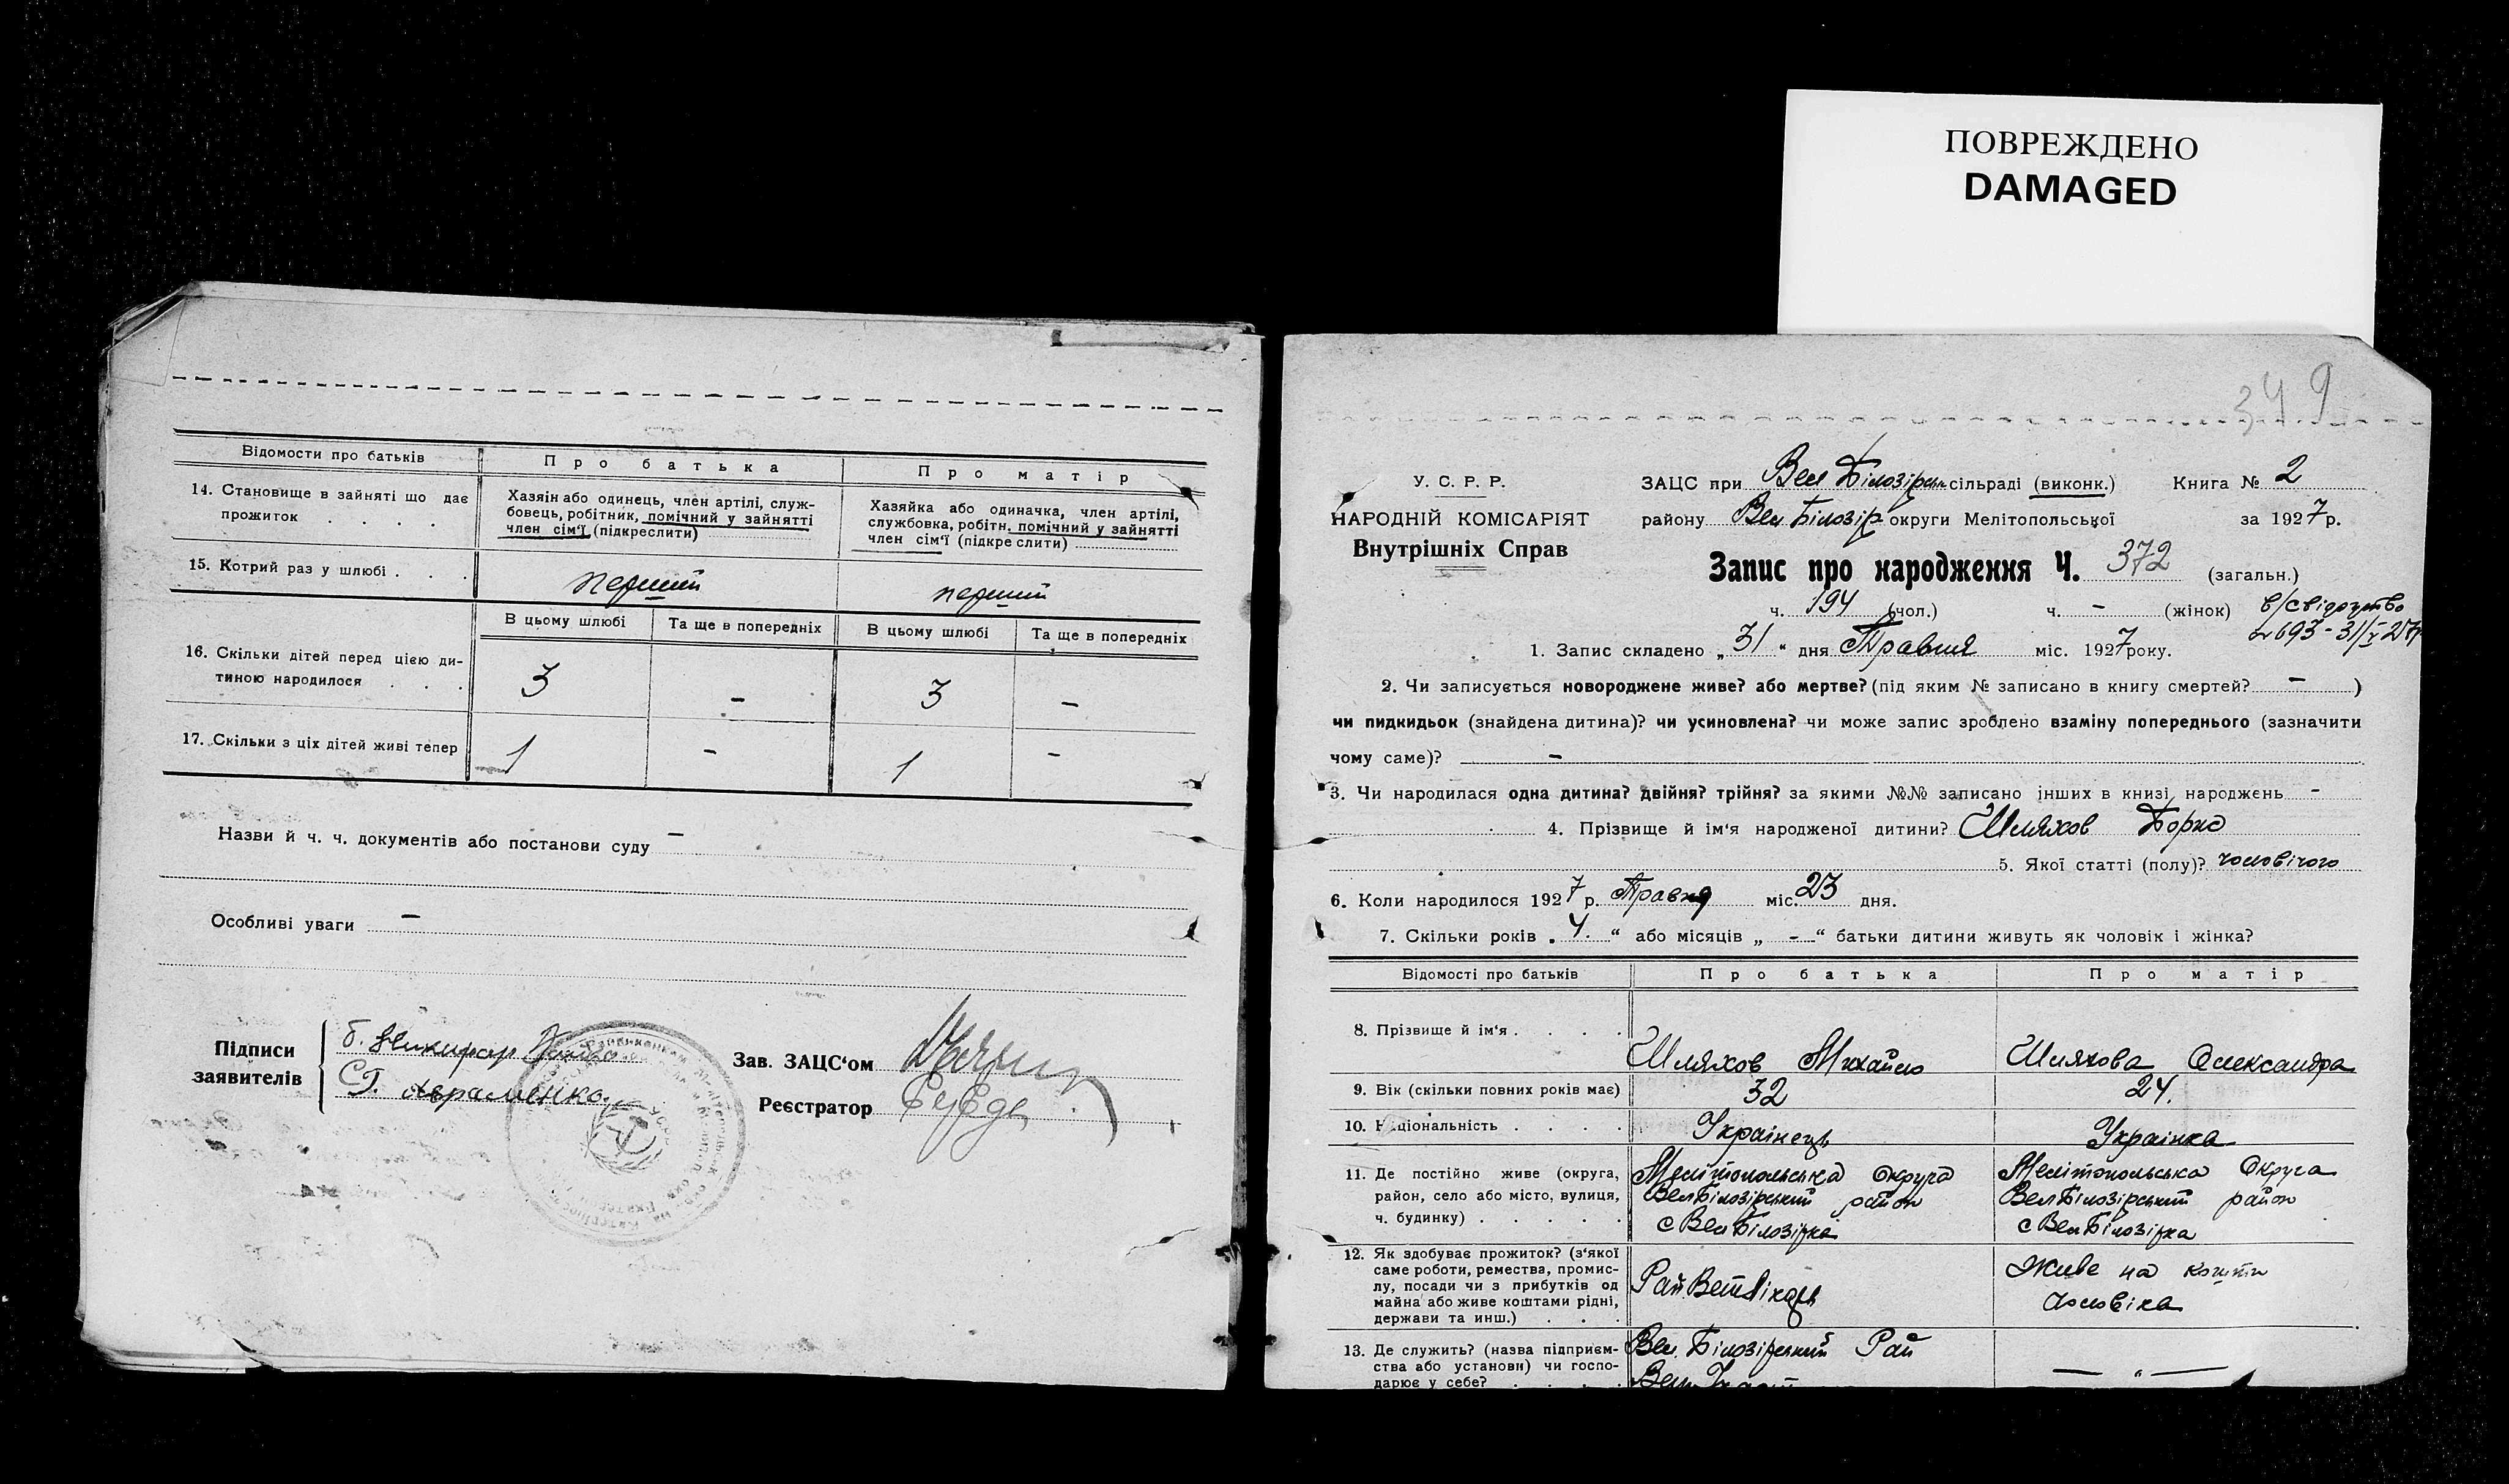 ПОВРЕЖДЕНО
DAMAGED
Відомости про батьків
Про батька
Про матір
14. Становище в зайняті що дає
прожиток . . . .
Хазяїн або одинець, член артілі, служ-
бовець, робітник, помічний у зайнятті
член сім'ї (підкреслити)
Хазяйка або одиначка, член артілі,
службовка, робітн. помічний у зайнятті
член сім'ї (підкреслити)
15. Котрий раз у шлюбі . . .
перший
перший
В цьому шлюбі
Та ще в попередніх
В цьому шлюбі
Та ще в попередніх
16. Скільки дітей перед цією ди-
тиною народилося . . .
3
-
3
-
17. Скільки з ціх дітей живі тепер
1
-
1
-
Назви й ч. ч. документів або постанови суду -
Особливі уваги -
Підписи
заявителів
Авраменко
Зав. ЗАЦС'ом
Реєстратор
349
У. С. Р. Р.
НАРОДНІЙ КОМІСАРІЯТ
Внутрішніх Справ
ЗАЦС при Вел Білозірськ сільраді (виконк.) Книга № 2
району Вел Білозір округи Мелітопольської за 1927 р.
Запис про народження Ч. 372 (загальн.)
ч. 194 (чол.) ч. - (жінок)
в/свідоцтво
№ 693 - 31/V 27р
1. Запис складено „31“ дня Травня міс. 1927 року.
2. Чи записується новороджене живе? або мертве? (під яким № записано в книгу смертей? - )
чи пидкидьок (знайдена дитина)? чи усиновлена? чи може запис зроблено взаміну попереднього (зазначити
чому саме)? -
3. Чи народилася одна дитина? двійня? трійня? за якими №№ записано інших в книзі народжень -
4. Прізвище й ім'я народженої дитини? Шляхов Борис
5. Якої статті (полу)? чоловічого
6. Коли народилося 1927 р. Травня міс. 23 дня.
7. Скільки років „4.“ або місяців „-“ батьки дитини живуть як чоловік і жінка?
Відомості про батьків
Про батька
Про матір
8. Прізвище й ім'я . . . .
Шляхов Михайло
Шляхова Олександра
9. Вік (скільки повних років має)
32
24.
10. Національність . . . .
Українець
Українка
11. Де постійно живе (округа,
район, село або місто, вулиця,
ч. будинку) . . . . .
Мелітопольська округа
Вел Білозірський район
с Вел Білозірка
Мелітопольська Округа
Вел Білозірський район
с Вел Білозірка
12. Як здобуває прожиток? (з'якої
саме роботи, ремества, промис-
лу, посади чи з прибутків од
майна або живе коштами рідні,
держави та инш.) . . .
Рай Ветлікарь
Живе на кошти
чоловіка
13. Де служить? (назва підприєм-
ства або установи) чи госпо-
дарює у себе? . . . .
Вел. Білозірський Рай
— „ —